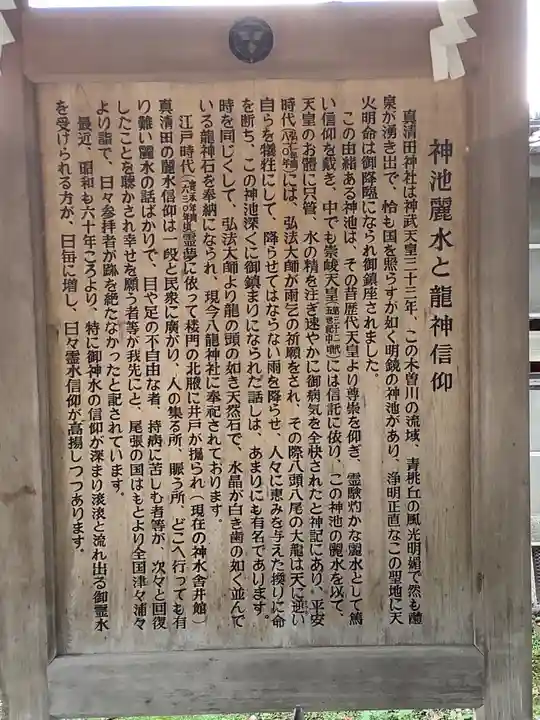 神池麗水と龍神信仰
真清田神社は神武天皇三十三年、この木曽川の流域、青桃丘の風光明媚で然も醴
泉が湧き出で、恰も国を照らすが如く明鏡の神池があり、浄明正直なこの聖地に天
火明命は御降臨になられ御鎮座されました。
この由緒ある神池は、その昔歴代天皇より尊崇を仰ぎ、霊験灼かな麗水として篤
い信仰を戴き、中でも崇峻天皇には信託に依り、この神池の麗水を以て、
天皇のお體に只管、水の精を注ぎ速やかに御病気を全快されたと神記にあり、平安
時代には、弘法大師が雨乞の祈願をされ、その際八頭八尾の大龍は天に逆い
自らを犠牲にして、降らせてはならない雨を降らせ、人々に恵みを与えた換りに命
を断ち、この神池深くに御鎮まりになられた話しは、あまりにも有名であります。
時を同じくして、弘法大師より龍の頭の如き天然石で、水晶が白き歯の如く並んで
いる龍神石を奉納になられ、現今八龍神社に奉祀されております。
江戸時代霊夢に依って楼門の北腋に井戸が掘られ（現在の神水舎井館）
真清田の麗水信仰は一段と民衆に廣がり、人の集る所、賑う所、どこへ行っても有
り難い麗水の話ばかりで、目や足の不自由な者、持病に苦しむ者等が、次々と回復
したことを聴かされ幸せを願う者等が我先にと、尾張の国はもとより全国津々浦々
より詣で、日々参拝者が跡を絶たなかったと記されています。
最近、昭和も六十年ころより、特に御神水の信仰が深まり滾滾と流れ出る御霊水
を受けられる方が、日毎に増し、日々霊水信仰が高揚しつつあります。